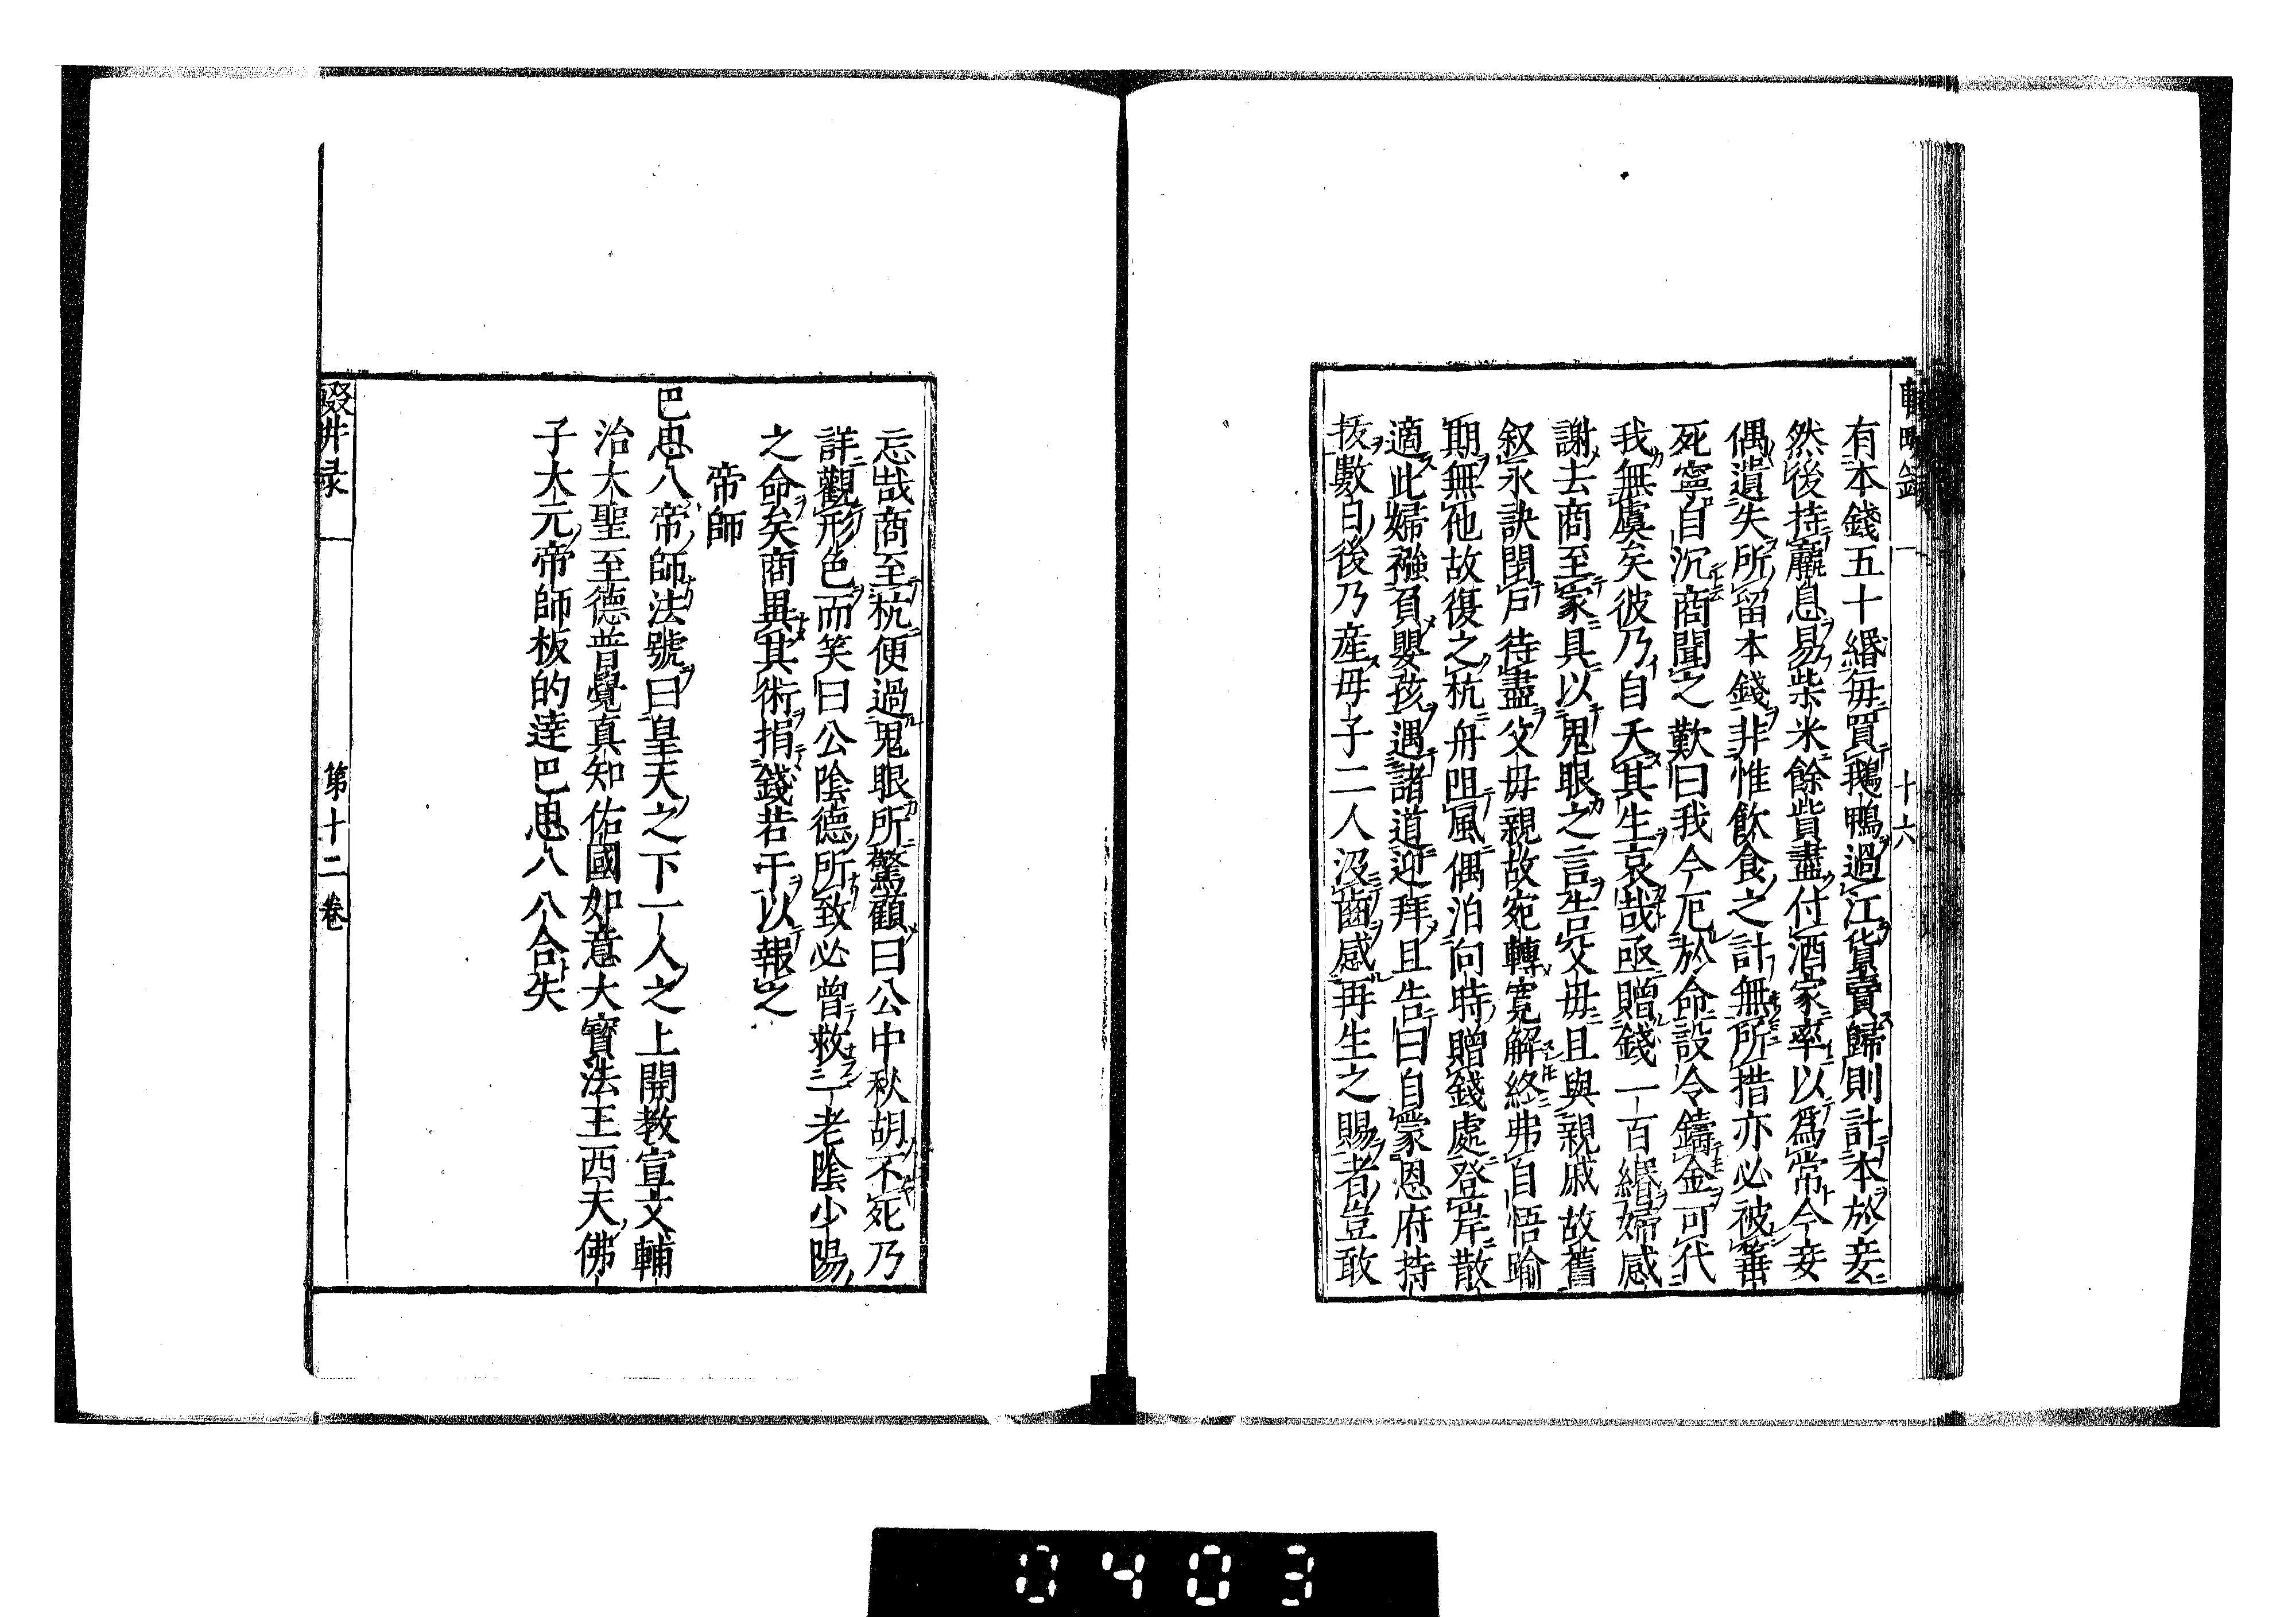 有本錢五十緡毎買鵝鴨過江貨賣歸則計本於妾
然後持贏息易柴米餘貲盡付酒家率以爲常今妾
偶遺失所留本錢非惟飲食之計無所措亦必被箠
死寧自沉商聞之歎曰我今厄於命設令鑄金可代
我無虞矣彼乃自夭其生哀哉亟贈錢一百緡婦感
謝去商至家具以鬼眼之言告父毋且與親戚故舊
叙永訣閉戸待盡父毋親故宛轉寛解終弗自悟踰
期無他故復之杭舟阻風偶泊向時贈錢處登岸散
適此婦襁負嬰孩遇諸道迎拜且告曰自蒙恩府持
拔數日後乃産毋子二人沒齒感再生之賜者豈敢
十六
忘哉商至杭便過鬼眼所驚顧曰公中秋胡不死乃
詳觀形色而笑曰公陰德所致必曾救一老陰少陽
之命矣商異其術捐錢若干以報之
帝師
巴思八帝師法號曰皇天之下一人之上開教宣文輔
治大聖至德普覺真知佑國如意大寶法王西天佛
子大元帝師板的達巴思八八合失
輟耕録 第十二卷
0403